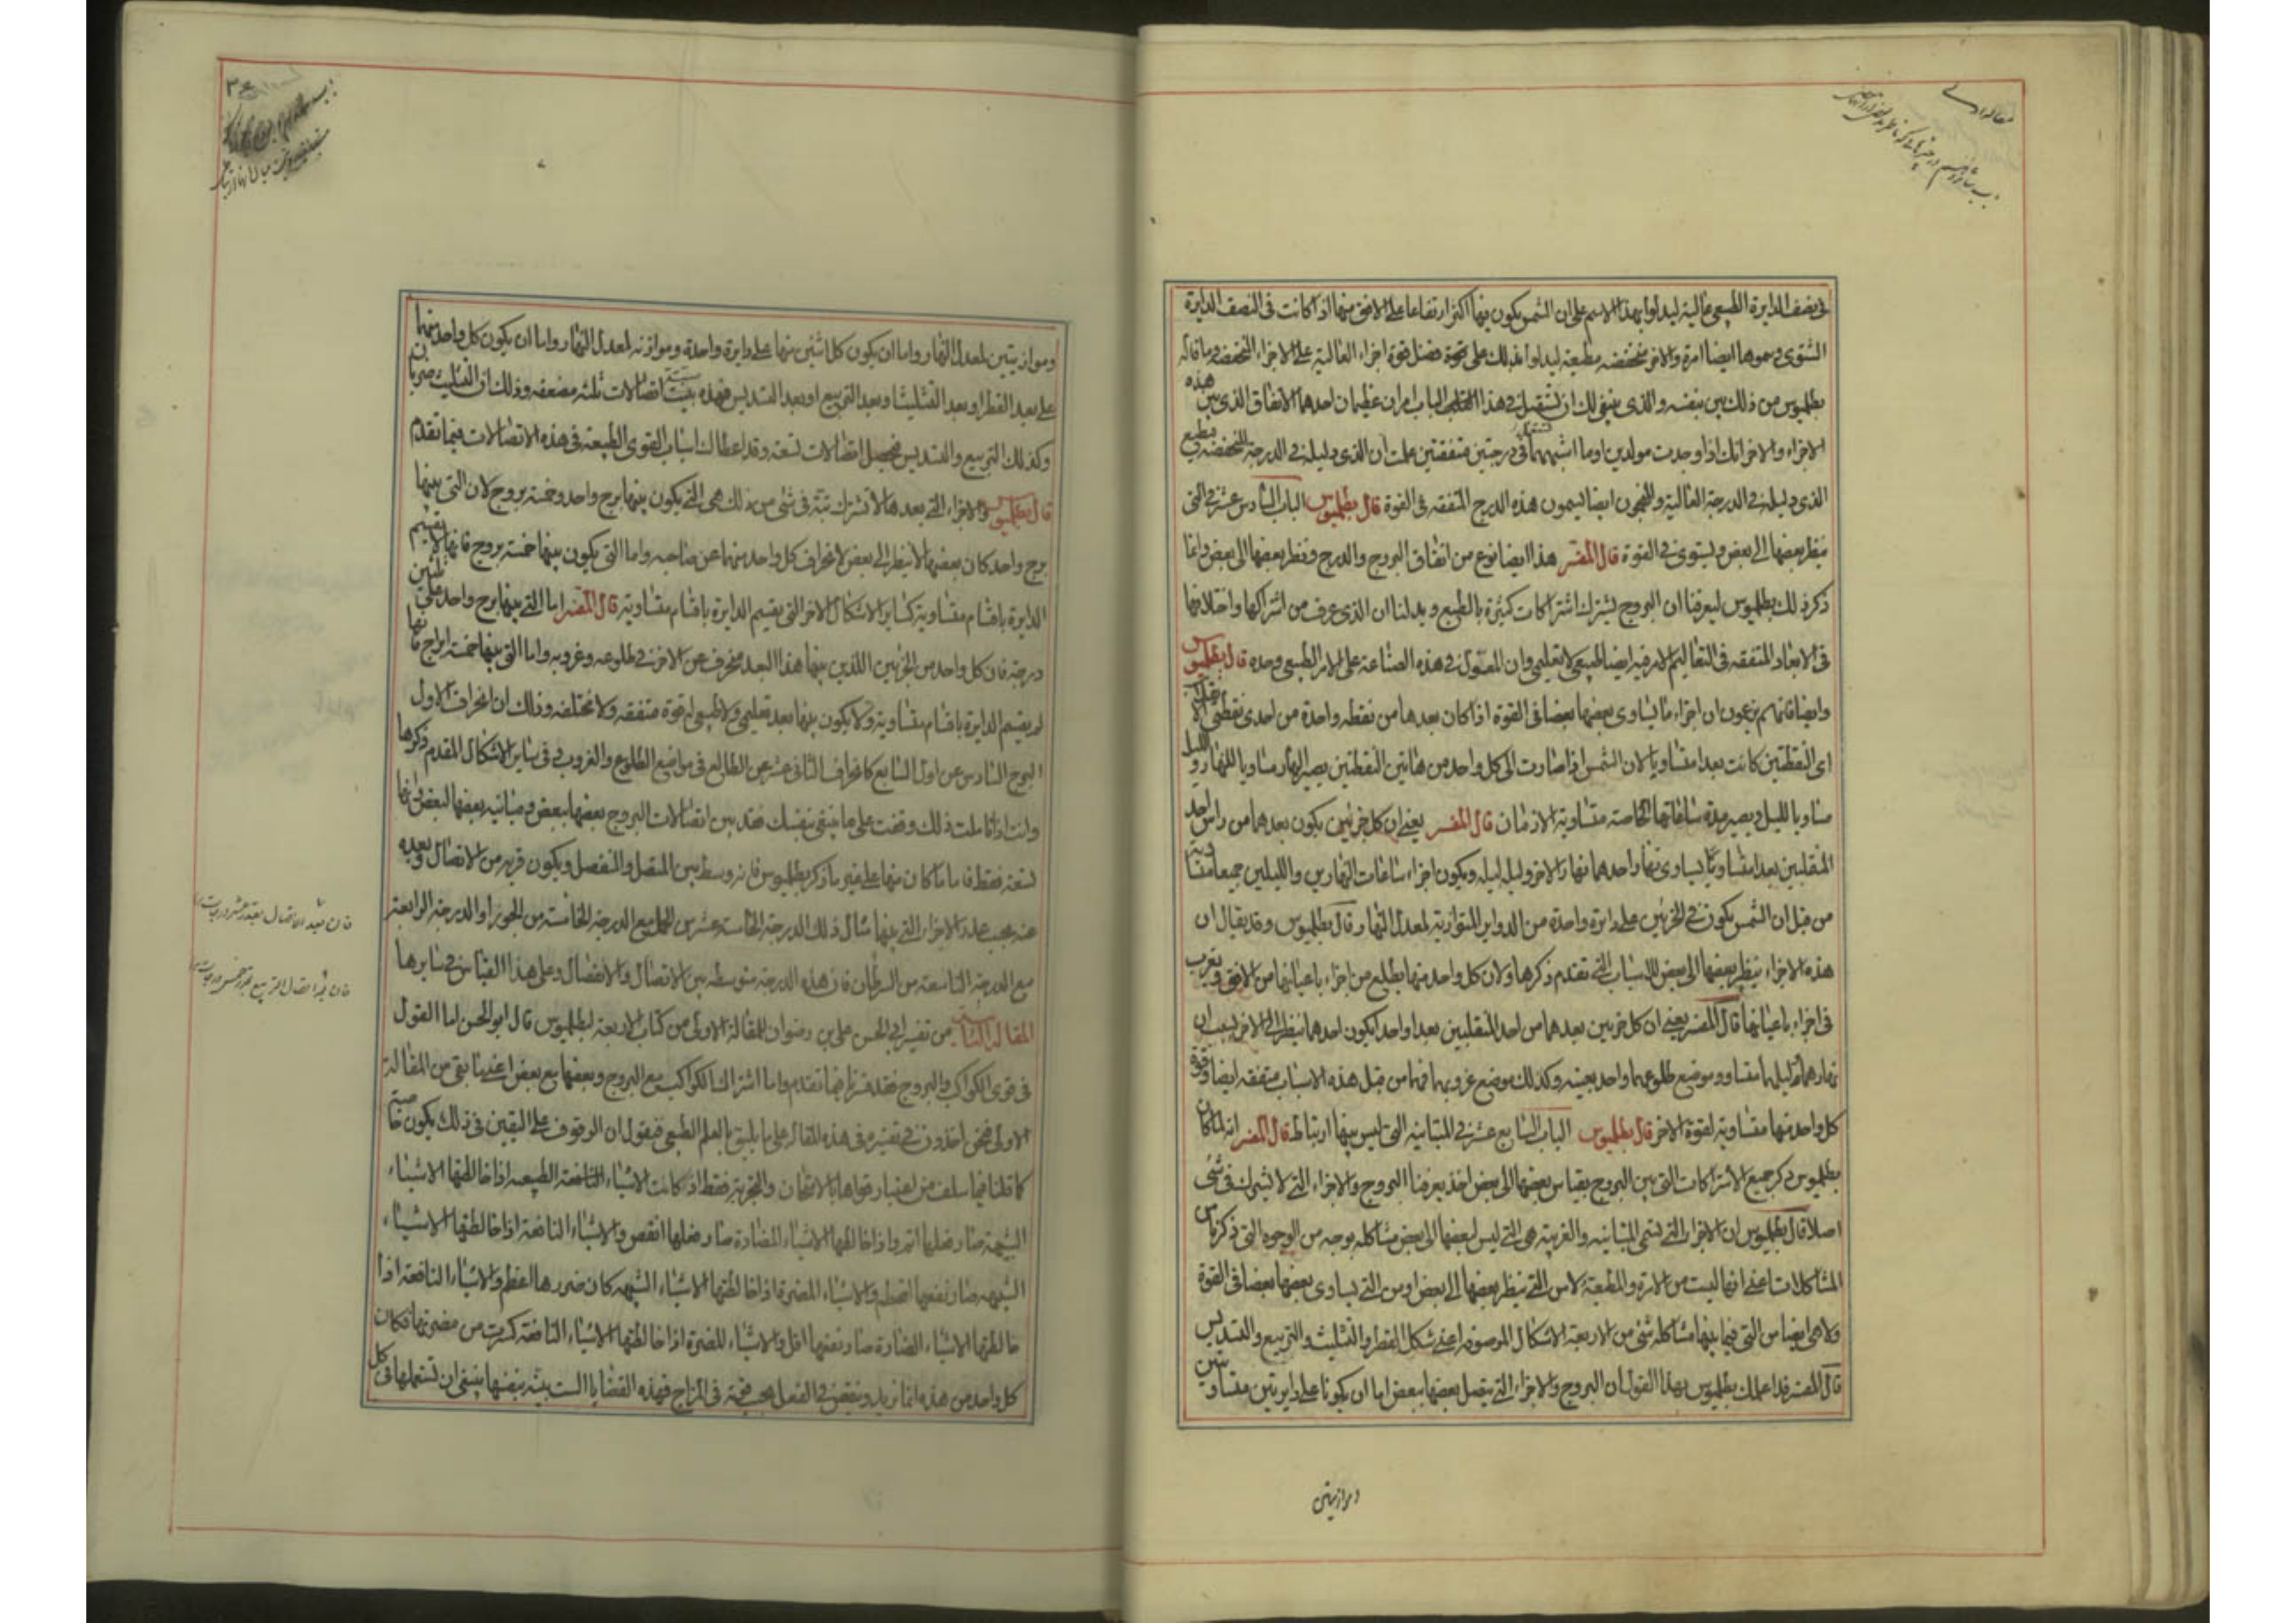 في نصف الدايرة الطبيعي عالية ليدلوا بهذا الاسم على ان الشمس يكون فيها اكثر ارتفاعا على الافق منها اذا كانت في النصف الدايرة
الشتوى وسموها ايضا امرة والاخر منخفضه مطيعة ليدلوا بذلك على قوة فضل قوة اجزاء العالية على الاجزاء المنخفضة وما قاله
بطلميوس من ذلك بين بنفسه والذى ينبغي لك ان تستقبل في هذا الباب امران عظيمان احدهما الاتفاق الذى بين هذه
الاجزاء والاخر انك اذا وجدت مولدين اوما اشبههما في درجتين متفقتين علمت ان الذى دليله في الدرجة المنخفضه يطيع
الذى دليله في الدرجة العالية والمنجمون ايضا يسمون هذه الدرج المتفقه في القوة قال بطلميوس الباب السادس عشر في التي
ينظر بعضها الى بعض ويستوى في القوة قال المفسر هذا ايضا نوع من اتفاق البروج والدرج ونظر بعضها الى بعض وانما
ذكر ذلك بطلميوس ليعرفنا ان البروج يشترك اشتراكات كثيرة بالطبع ويدلنا ان الذى عرف من اشتراكها واختلافها
في الابعاد المتفقه في التعاليم الامر فيه ايضا طبيعي لا تعليمي وان المعول في هذه الصناعة على الامر الطبيعي وحده قال بطلميوس
وايضا فانهم يزعمون ان اجزاء ما يساوى بعضها بعضا في القوة اذا كان بعدها من نقطه واحدة من احدى نقطتي
اى النقطتين كانت بعدا متساويا لان الشمس اذا صارت الى كل واحد من هاتين النقطتين يصير النهار مساويا للنهار والليل
مساويا لليل ويصير مدة ساعاتها الخاصة متساوية الازمان قال المفسر يعني ان كل جزئين يكون بعدهما من راس احد
المنقلبين بعدا متساويا يساوى نهار احدهما نهار الاخر وليله ليله ويكون اجزاء ساعات النهارين والليلين جميعا متساوية
من قبل ان الشمس يكون في الجزئين على دايرة واحدة من الدواير المتوازية لمعدل النهار وقال بطلميوس وقد يقال ان
هذه الاجزاء ينظر بعضها الى بعض للاسباب التي تقدم ذكرها ولان كل واحد منها يطلع من اجزاء باعيانها من الافق ويغرب
في اجزاء باعيانها قال المفسر يعني ان كل جزيين بعدهما من احد المنقلبين بعدا واحدا يكون احدهما ينظر الى الاخر بسبب ان
نهارهما وليلهما متساو وموضع طلوعهما واحد بعينه وكذلك موضع غروبهما فهما من قبل هذه الاسباب متفقه ايضا وقوة
كل واحد منها متساوية لقوة الاخر قال بطلميوس الباب السابع عشر في المتباينه التي ليس بينها ارتباط قال المفسر انه لما كان
بطلميوس ذكر جميع الاشتراكات التي بين البروج بقياس بعضها الى بعض اخذ يعرفنا البروج والاجزاء التي لا تشترك في شئ
اصلا قال بطلميوس ان الاجزاء التي تسمى المتباينه والغريبة هي التي ليس لبعضها الى بعض مشاكله بوجه من الوجوه التي ذكرنا من
المشاكلات اعني انها ليست من الامرة والمطيعة ولا من التي ينظر بعضها الى بعض ومن التي يساوى بعضها بعضا في القوة
ولا هي ايضا من التي فيما بينها مشاكله شئ من الاربعة الاشكال الموصوفه اعني شكل القطر والتثليث والتربيع والتسديس
قال المفسر قد اعلمك بطلميوس بهذا القول ان البروج والاجزاء التي يتصل بعضها ببعض اما ان يكونا على دايرتين متساويتين
وموازيتين
وموازيتين لمعدل النهار واما ان يكون كل اثنين منها على دايرة واحدة وموازنه لمعدل النهار واما ان يكون كل واحد منهما
على بعد القطر او بعد التثليث او بعد التربيع او بعد التسديس فهذه ستة اتصالات ثلثه مضعفه وذلك ان التثليث ضربان
وكذلك التربيع والتسديس فيحصل اتصالات تسعة وقد اعطاك اسباب القوى الطبيعة في هذه الاتصالات فيما تقدم
قال بطلميوس والاجزاء التي بعدها لا تشترك بتة في شئ من ذلك هي التي يكون بينها برج واحد وخمسة بروج لان التي بينها
برج واحد كان بعضها لا ينظر الى بعض لانحراف كل واحد منهما عن صاحبه واما التي يكون بينها خمسة بروج فانها لا تقسم
الدايرة باقسام متساوية كساير الاشكال الاخر التي يقسم الدايرة باقسام متساوية قال المفسر اما التي بينها برج واحد
درجة فان كل واحد من الجزئين اللذين بينها هذا البعد منحرف عن الاخر في طلوعه وغروبه واما التي بينها خمسة ابراج فانها
لم يقسم الدايرة باقسام متساوية ولا يكون بينها بعد تعليمي ولا طبيعي له قوة متفقه ولا مختلفه وذلك ان انحراف الاول
البرج السادس عن اول السابع كانحراف الثاني عشر عن الطالع في مواضع الطلوع والغروب وفي ساير الاشكال المقدم ذكرها
وانت اذا تاملت ذلك وقفت على ما ينبغي بنفسك فقد بين اتصالات البروج بعضها ببعض ومباينه بعضها لبعض وانها
تسعة فقط فاما ما كان منها على غير ما ذكر بطلميوس فانه وسط بين المتصل والمنفصل ويكون قربه من الاتصال وبعده
عنه بحسب عدد الاجزاء التي بينها مثال ذلك الدرجة الخامسة عشر من الحمل مع الدرجة الخامسة من الجوزا والدرجة الرابعة
مع الدرجة التاسعة من السرطان فان هذه الدرجة متوسطه بين الاتصال والانفصال وعلى هذا القياس في سايرها
المقالة الثانية من تفسير ابي الحسن علي بن رضوان للمقالة الاولى من كتاب الاربعة لبطلميوس قال ابو الحسن اما القول
في قوى الكواكب والبروج فقد فسرناه فيما تقدم واما اشتراك الكواكب مع البروج وبعضها مع بعض اعني ما بقى من المقالة
الاولى فنحن اخذون في تفسيره في هذه المقاله على ما يليق بالعلم الطبيعي فنقول ان الوقوف على اليقين في ذلك يكون خاصة
كما قلنا فيما سلف من اعتبار قواها بالامتحان والتجربة فقط اذ كانت الاشياء النافعة الطبيعه اذا خالطتها الاشياء
الشبيهة صار فعلها اتم واذا خالطها الاشياء المضادة صار فعلها انقص والاشياء النافعة اذا خالطتها الاشياء
الشبيهه صار نفعها افضل والاشياء المضرة اذا خالطتها الاشياء الشبيهه كان ضررها اعظم والاشياء النافعة اذا
خالطتها الاشياء المضادة صار نفعها اقل والاشياء المضرة اذا خالطتها الاشياء النافعة كسرت من مضرتها فكان
كل واحد من هذه انما يزيد وينقص في الفعل بحسب قوته في المزاج فهذه القضايا البينه بنفسها ينبغي ان تستعملها في كل